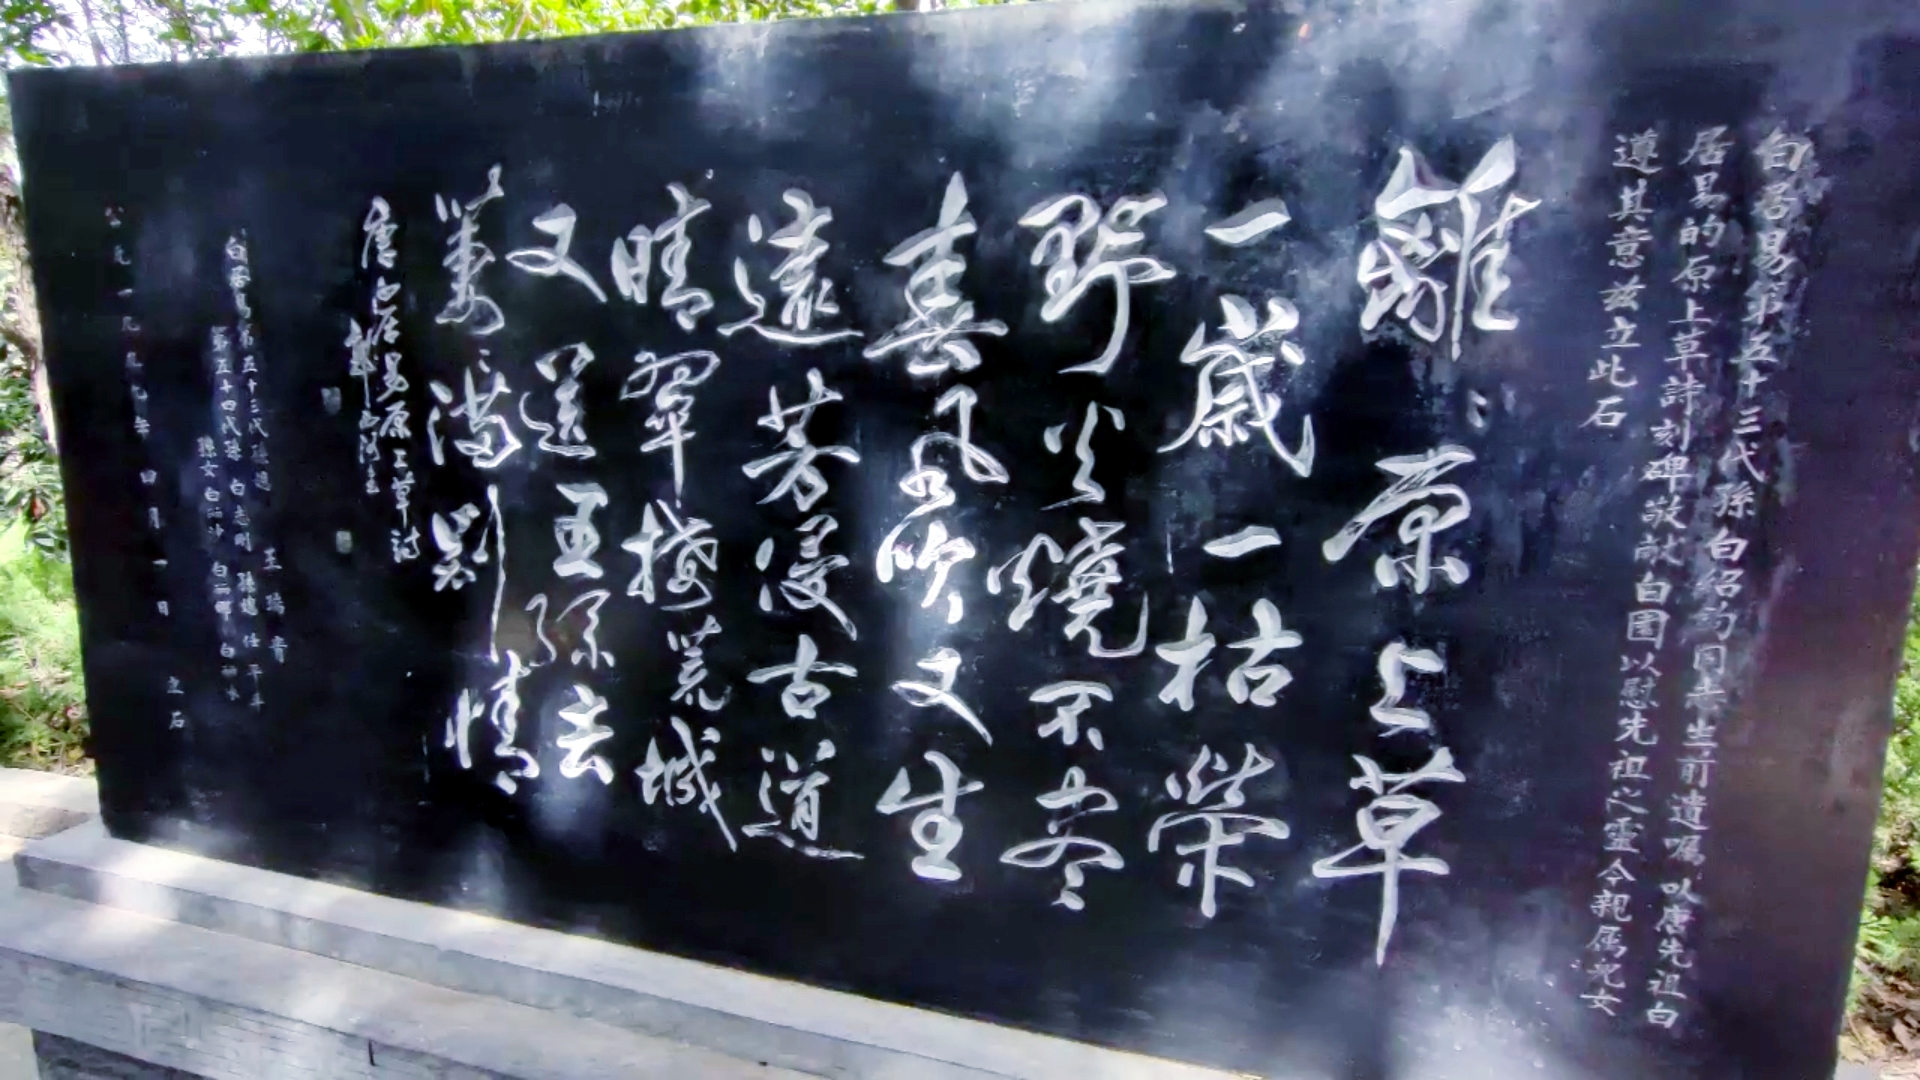 白居易第五十三代孫白绍昀同志生前遺嘱以唐先祖白
居易的原上草詩刻碑敬献白園以慰先祖之霊今親属児女
遵其意兹立此石
離〻原上草
一歳一枯榮
野火燒不尽
春風吹又生
遠芳侵古道
晴翠接荒城
又送王孫去
萋〻滿別情
唐白居易原上草詩
王瑞青
白居易第五十三代孫媳
第五十四代孫 白志刚 孫媳 任平
孫女
公元一九九九年四月一日 立石